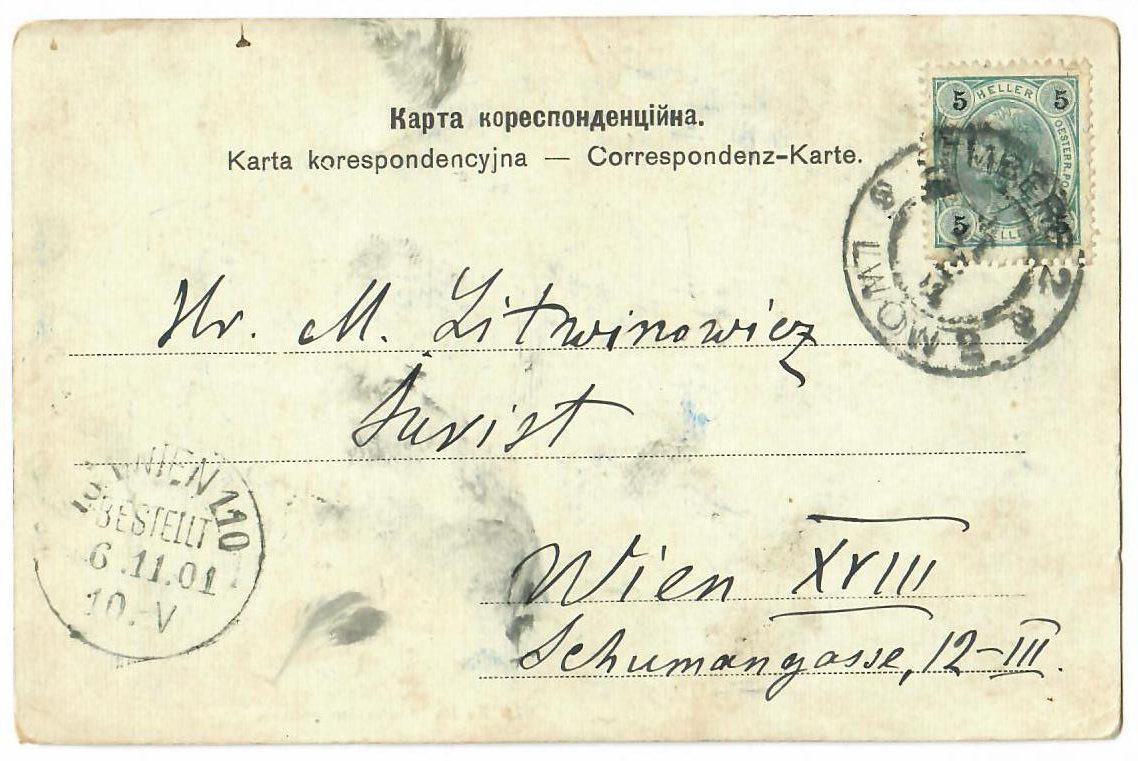 Карта кореспонденційна.
Karta korespondencyjna — Correspondenz-Karte.
5 HELLER 5
OESTERR. PO
5 HELLER
LEMBERG 2
LWÓW
Hr. M. Litwinowicz
Jurist
Wien XVIII
Schumangasse, 12-III.
WIEN 110
BESTELLT
6.11.01
10.-V